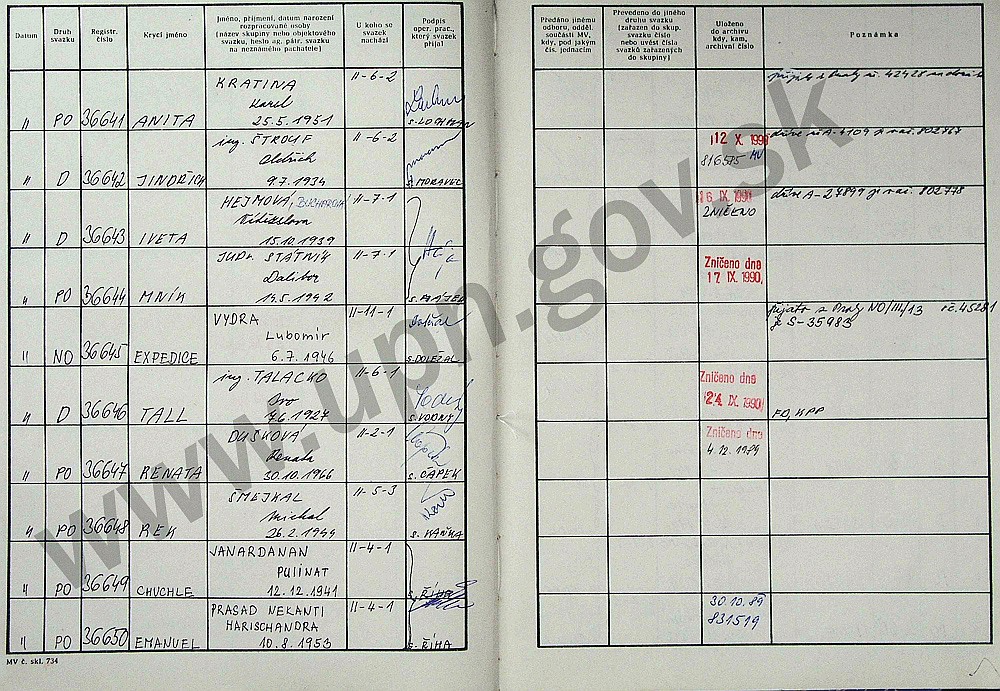 Datum
Druh svazku
Registr. číslo
Krycí jméno
Jméno, příjmení, datum narození
rozpracované osoby
(název skupiny nebo objektového
svazku, heslo ag. pátr. svazku
na neznámého pachatele)
U koho se
svazek
nachází
Podpis
oper. prac.,
který svazek
přijal
Předáno jinému
odboru, odděl.
součásti MV,
kdy, pod jakým
čís. jednacím
Převedeno do jiného
druhu svazku
(zařazen do skup.
svazku číslo
nebo uvést čísla
svazků zařazených
do skupiny)
Uloženo
do archivu
kdy, kam,
archivní číslo
Poznámka
KRATINA II-6-2
Karel
" PO 36641 ANITA 25.5.1951
ing. ŠTROUF II-6-2 12 X. 1990
Oldřich 816585 MV
" D 36642 JINDŘICH 9.7.1934 s. MORAVEC
HEJMOVÁ, BUCHAROVÁ II-7-1 dříve A-27899 802778
16 IX. 1990
ZNIČENO
" D 36643 IVETA 15.10.1939
JUDr. STÁTNÍK II-7-1 Zničeno dne
Dalibor 17 IX. 1990
" PO 36644 MNÍK 14.5.1942
VYDRA II-11-1 Přijato z Prahy NO/III/13 č.č. 45281
Lubomír je S-35983
" NO 36645 EXPEDICE 6.7.1946 s. DOLEŽAL
ing. TALACKO II-6-1 Zničeno dne
Ivo 24. IX. 1990
" D 36646 TALL 7.6.1927 s. VODNÝ FO, KPP
DUŠKOVÁ II-2-1 Zničeno dne
Renata 4.12.1989
" PO 36647 RENATA 30.10.1966 s. ČAPEK
SMEJKAL II-5-3
Michal
" PO 36648 REK 26.2.1944 s. KAŇKA
JANARDANAN II-4-1
PULINAT
" PO 36649 CHUCHLE 12.12.1941 s. ŘÍHA
PRASAD NEKANTI II-4-1 30.10.89
HARISCHANDRA 831519
" PO 36650 EMANUEL 10.8.1953 s. ŘÍHA
MV č. skl. 734
www.upn.gov.sk